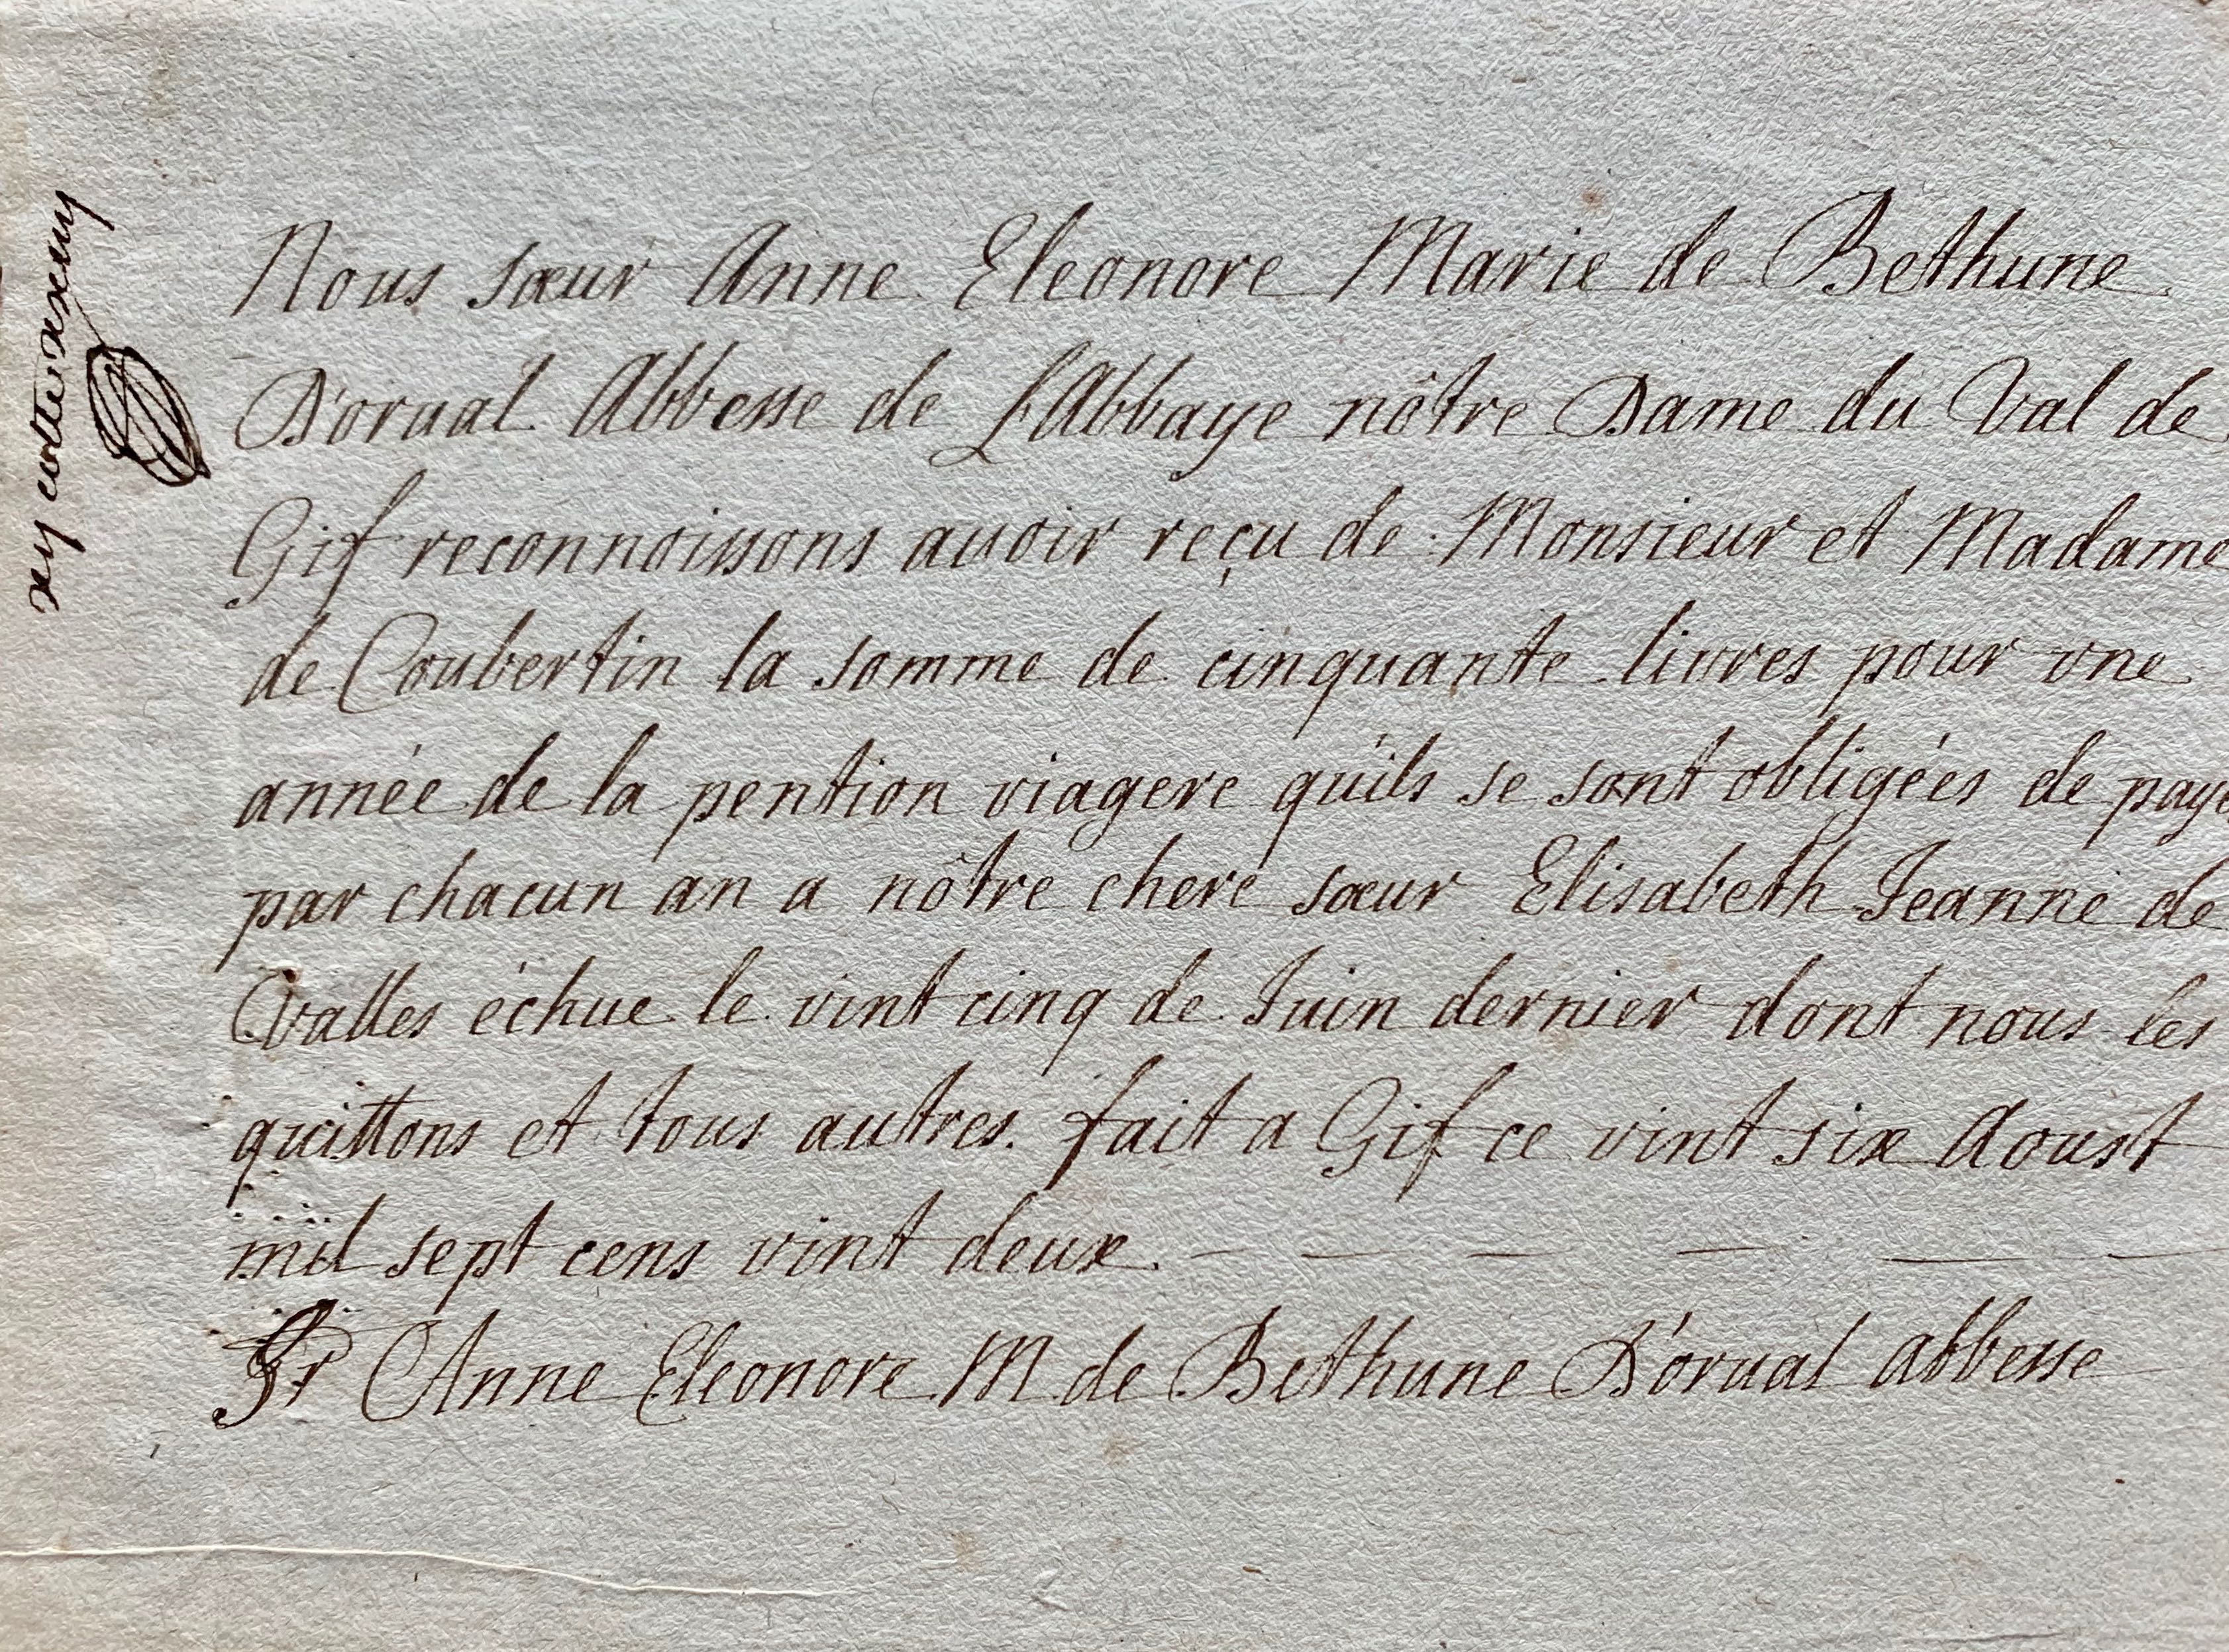 Nous sœur Anne Eleonore Marie de Bethune
D'orual Abbesse de L'Abbaye nôtre Dame du Val de
Gif reconnoissons auoir reçu de Monsieur et Madame
de Coubertin la somme de cinquante livres pour vne
année de la pention viagere qu'ils se sont obligées de paye
par chacun an a nôtre chere sœur Elisabeth Jeanne de
Valles échue le vint cinq de Juin dernier dont nous les
quittons et tous autres. fait a Gif ce vint six Aoust
mil sept cens vint deux.
Sr Anne Eleonore M de Bethune D'orual abbesse